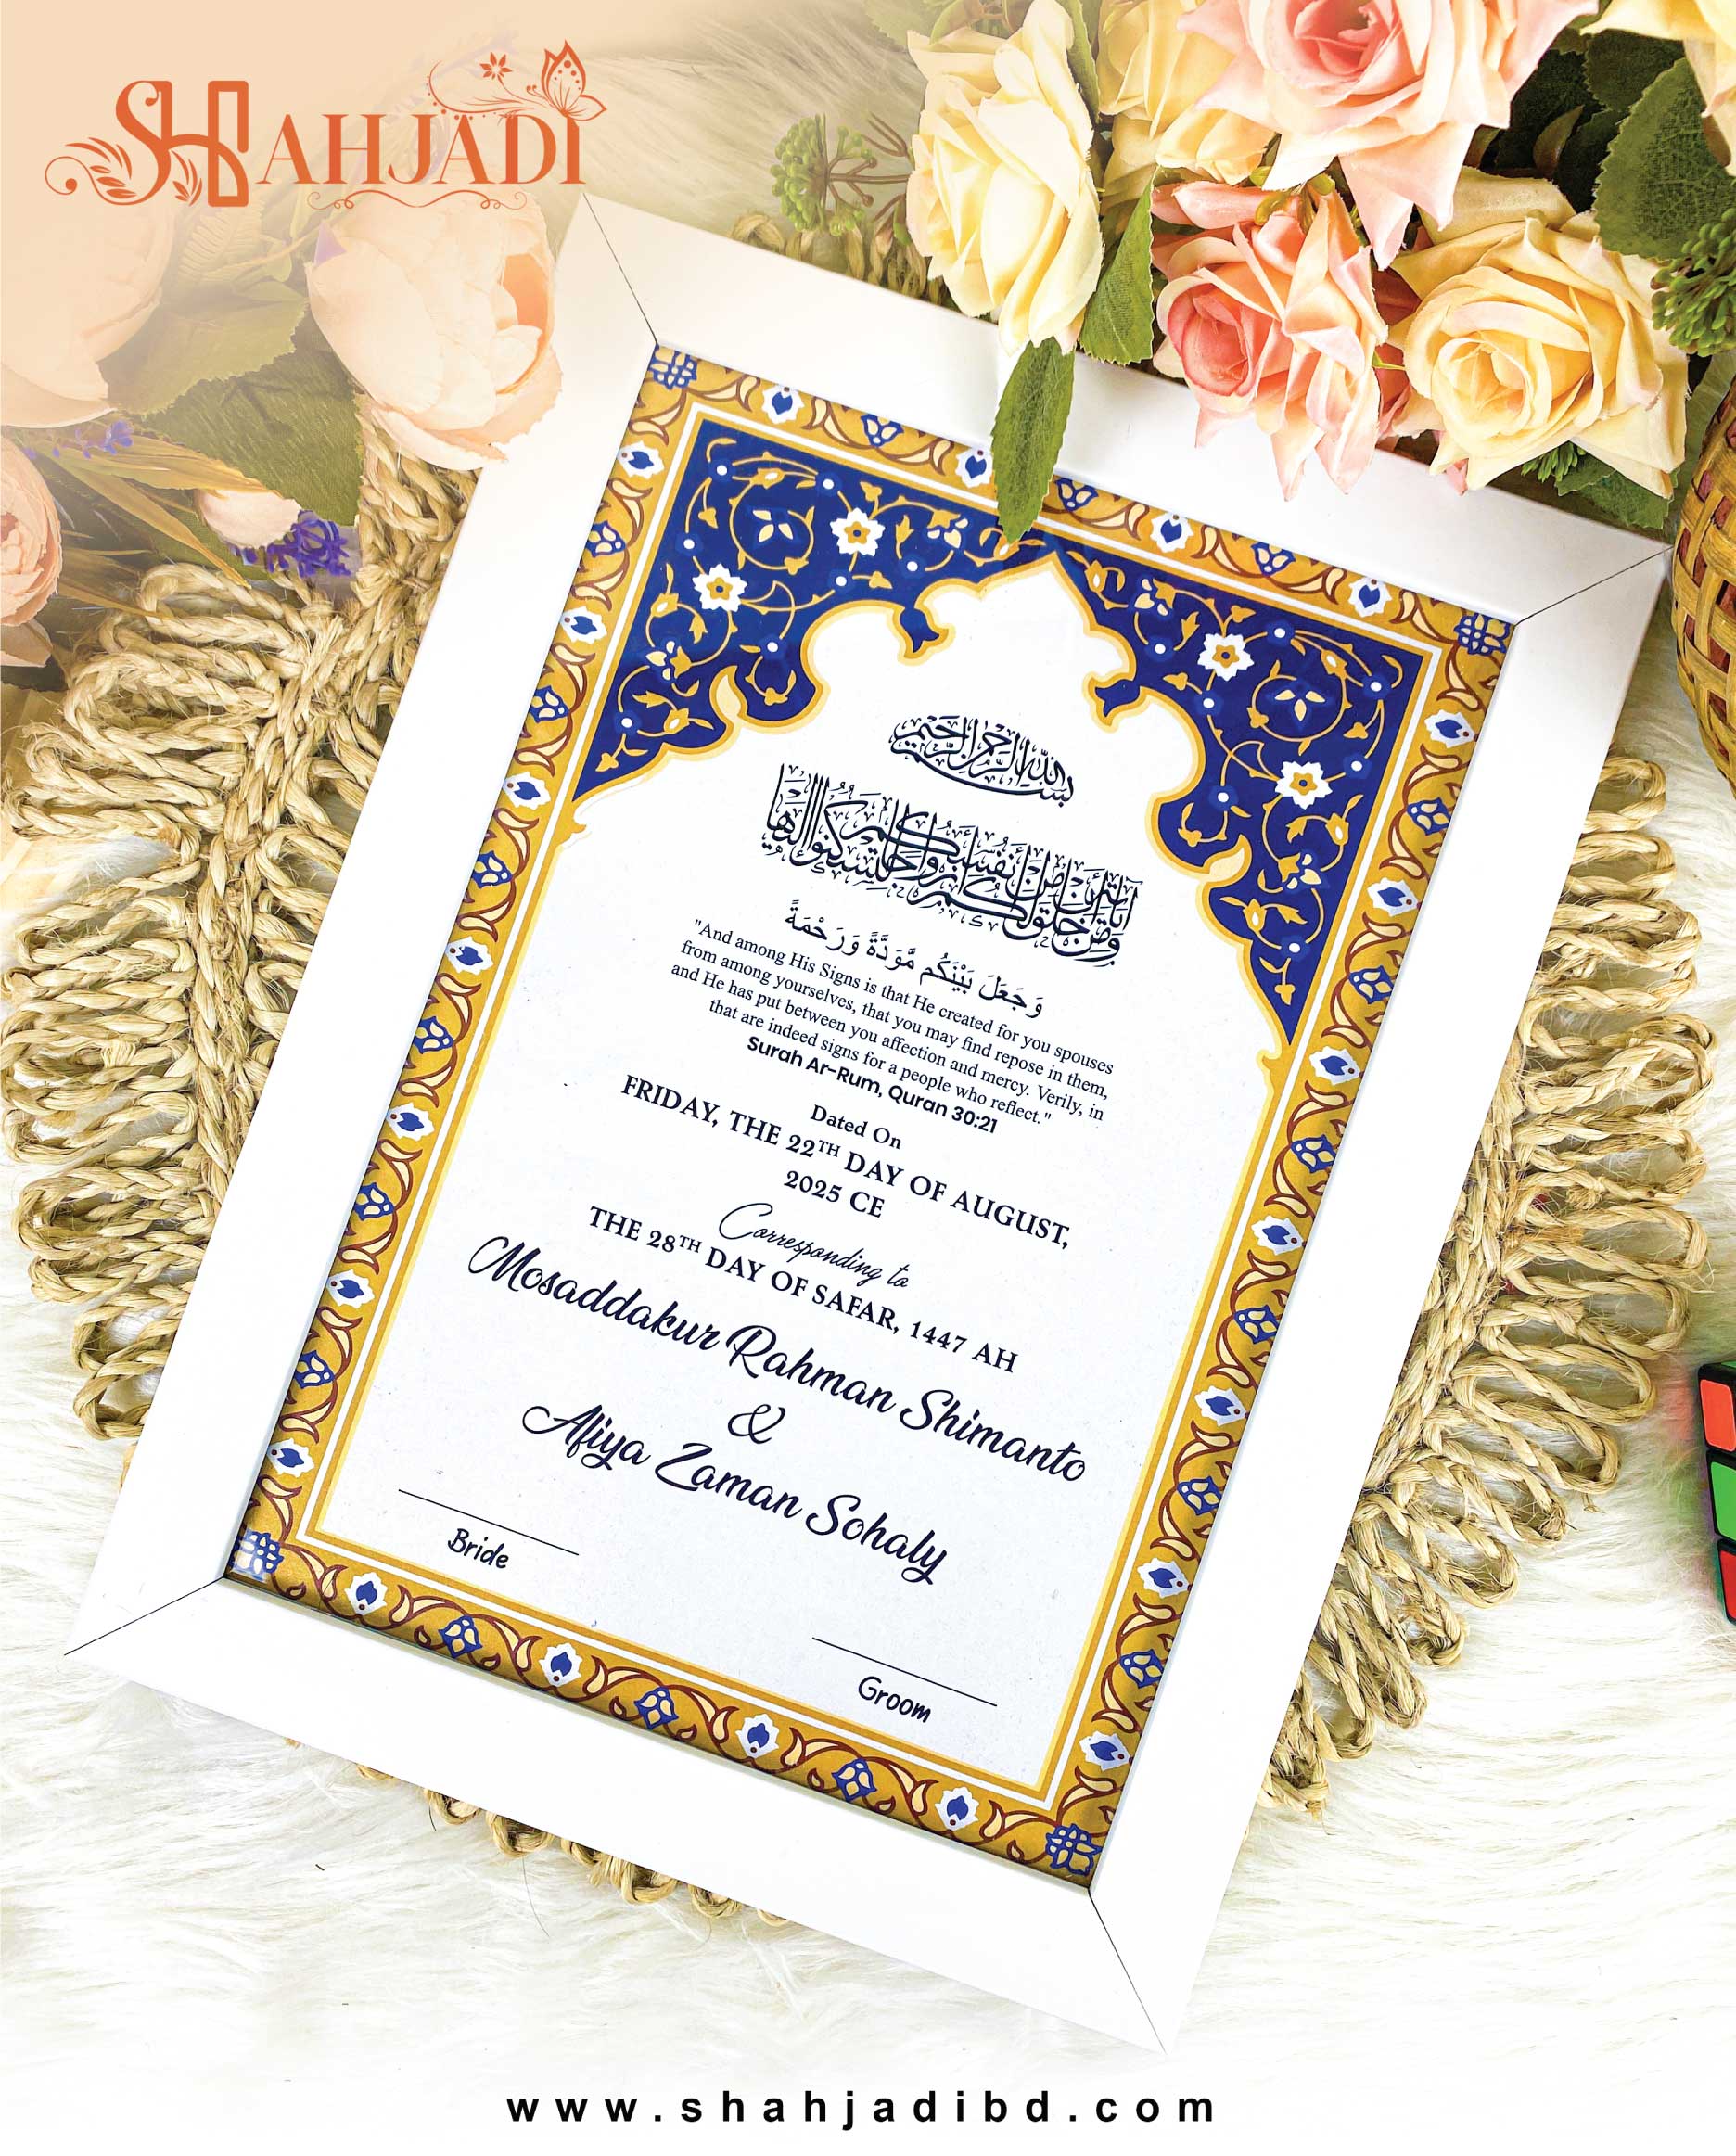 SHAHJADI
بسم الله الرحمن الرحيم
ومن آياته أن خلق لكم من أنفسكم أزواجا لتسكنوا إليها
وَجَعَلَ بَيْنَكُم مَّوَدَّةً وَرَحْمَةً
"And among His Signs is that He created for you spouses
from among yourselves, that you may find repose in them,
and He has put between you affection and mercy. Verily, in
that are indeed signs for a people who reflect."
Surah Ar-Rum, Quran 30:21
Dated On
FRIDAY, THE 22TH DAY OF AUGUST,
2025 CE
Corresponding to
THE 28TH DAY OF SAFAR, 1447 AH
Mosaddakur Rahman Shimanto
&
Afiya Zaman Sohaly
Bride
Groom
www.shahjadibd.com